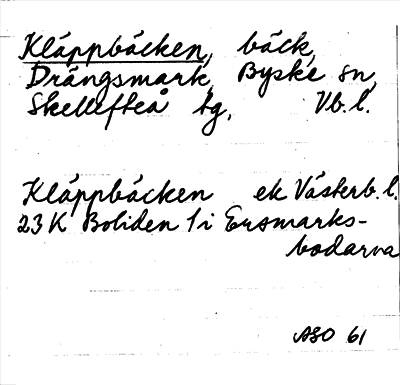 Kläppbäcken, bäck,
Drängsmark, Byske sn,
Skellefteå tg, Vb. l.
Kläppbäcken ek Västerb. l.
23 K Boliden 1 i Ersmarks-
bodarna
ASO 61